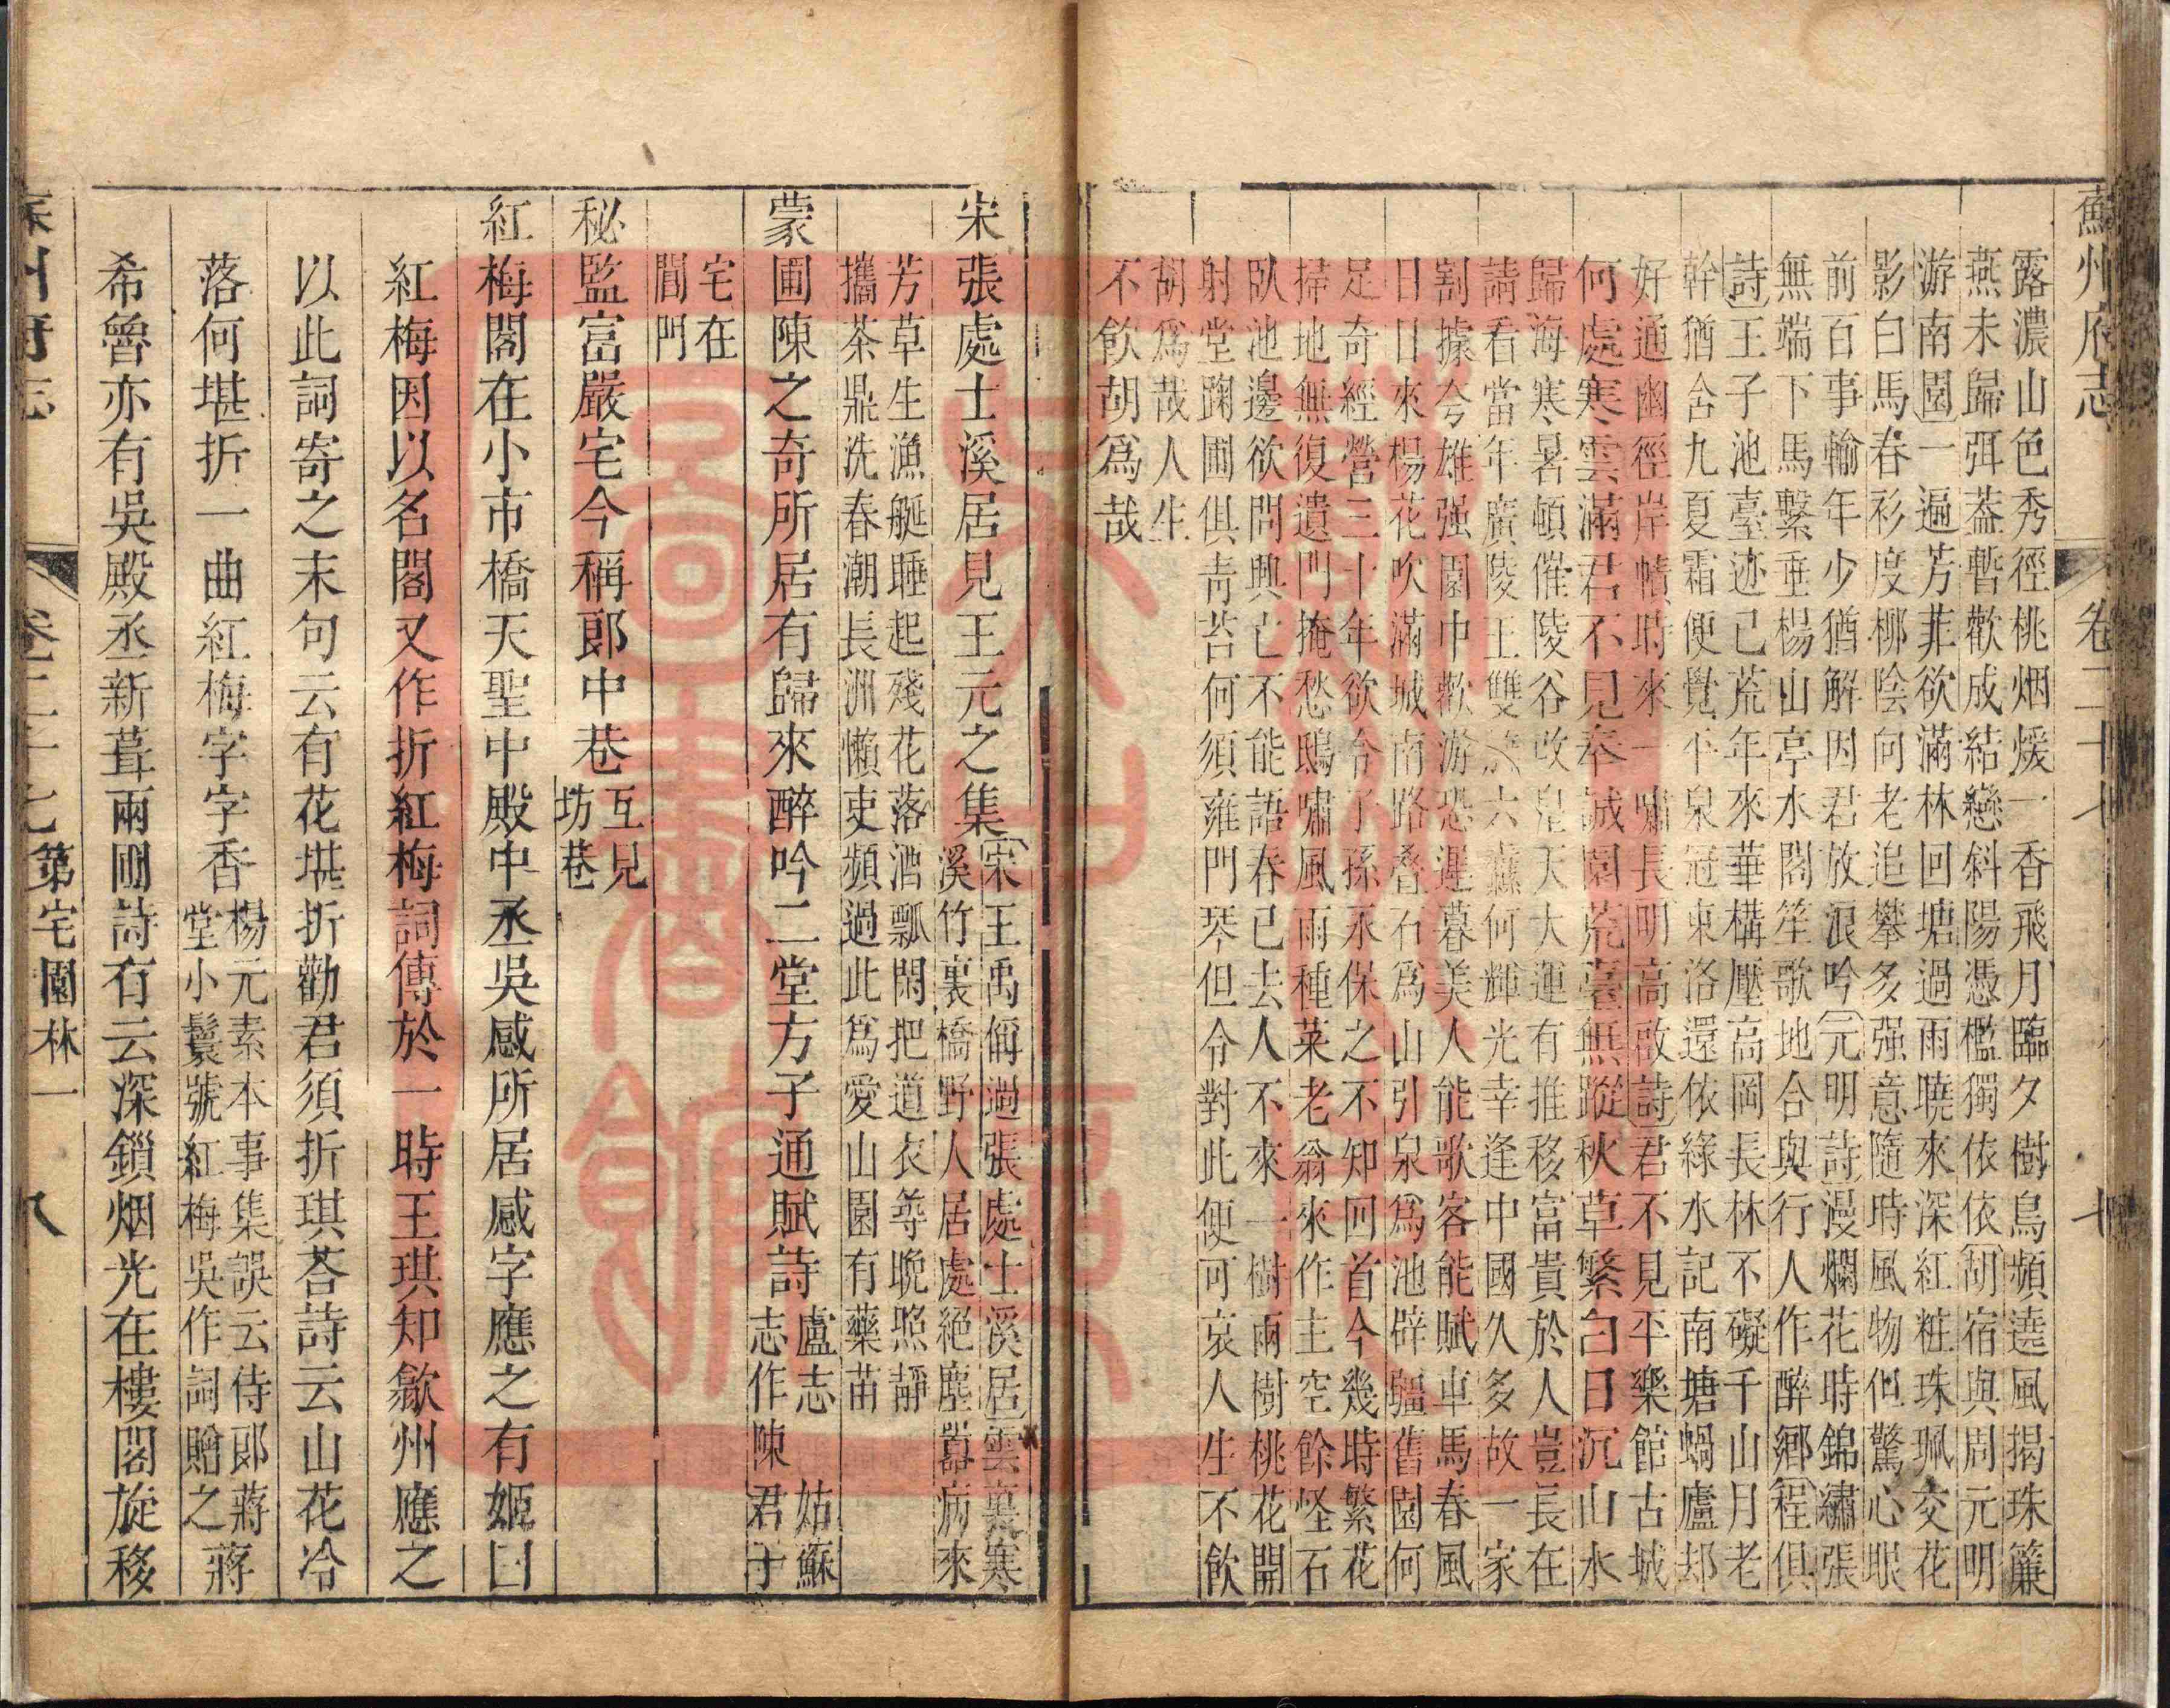 蘇州府志
卷二十七
七
露濃山色秀徑桃烟煖一香飛月臨夕樹鳥頻遶風揭珠簾
燕未歸弭葢暫歡成結戀斜陽憑檻獨依依胡宿與周元明
游南園一遍芳菲欲滿林回塘過雨曉來深紅粧珠珮交花
影白馬春衫度柳陰向老追攀多强意隨時風物但驚心眼
前百事輸年少猶解因君放浪吟元明詩漫爛花時錦繡張
無端下馬繫垂楊山亭水閣笙歌地合與行人作醉鄉程俱
詩王子池臺迹已荒年來華構壓高岡長林不礙千山月老
幹猶含九夏霜便覺平泉冠東洛還依綠水記南塘蝸廬却
好通幽徑岸幘時來一嘯長明高啟詩君不見平樂館古城
何處寒雲滿君不見奉誠園荒臺無蹤秋草繁白日沉山水
歸海寒暑頓催陵谷改皇天大運有推移富貴於人豈長在
請看當年廣陵王雙旌六纛何輝光幸逢中國久多故一家
割據兮雄强園中歡游恐遲暮美人能歌客能賦車馬春風
日日來楊花吹滿城南路叠石爲山引泉爲池辟疆舊園何
足奇經營三十年欲令子孫永保之不知回首今幾時繁花
掃地無復遺門掩愁鴟嘯風雨種菜老翁來作主空餘怪石
臥池邊欲問興亡不能語春已去人不來一樹兩樹桃花開
射堂踘圃俱青苔何須雍門琴但令對此便可哀人生不飮
胡爲哉人生
不飮胡爲哉
宋張處士溪居見王元之集
宋王禹偁過張處士溪居雲裏寒
溪竹裏橋野人居處絕塵囂病來
芳草生漁艇睡起殘花落酒瓢閑把道衣尋晩照靜
攜茶鼎洗春潮長洲懶吏頻過此爲愛山園有藥苗
蒙圃陳之奇所居有歸來醉吟二堂方子通賦詩
盧志 姑蘇
志作陳君子
宅在
閶門
秘監富嚴宅今稱郞中巷
互見
坊巷
紅梅閣在小市橋天聖中殿中丞吳感所居感字應之有姬曰
紅梅因以名閣又作折紅梅詞傳於一時王琪知歙州應之
以此詞寄之末句云有花堪折勸君須折琪荅詩云山花冷
落何堪折一曲紅梅字字香
楊元素本事集誤云侍郞蔣
堂小鬟號紅梅吳作詞贈之
蔣
希魯亦有吳殿丞新葺兩圃詩有云深鎖烟光在樓閣旋移
蘇州府志
卷二十七第宅園林一
八